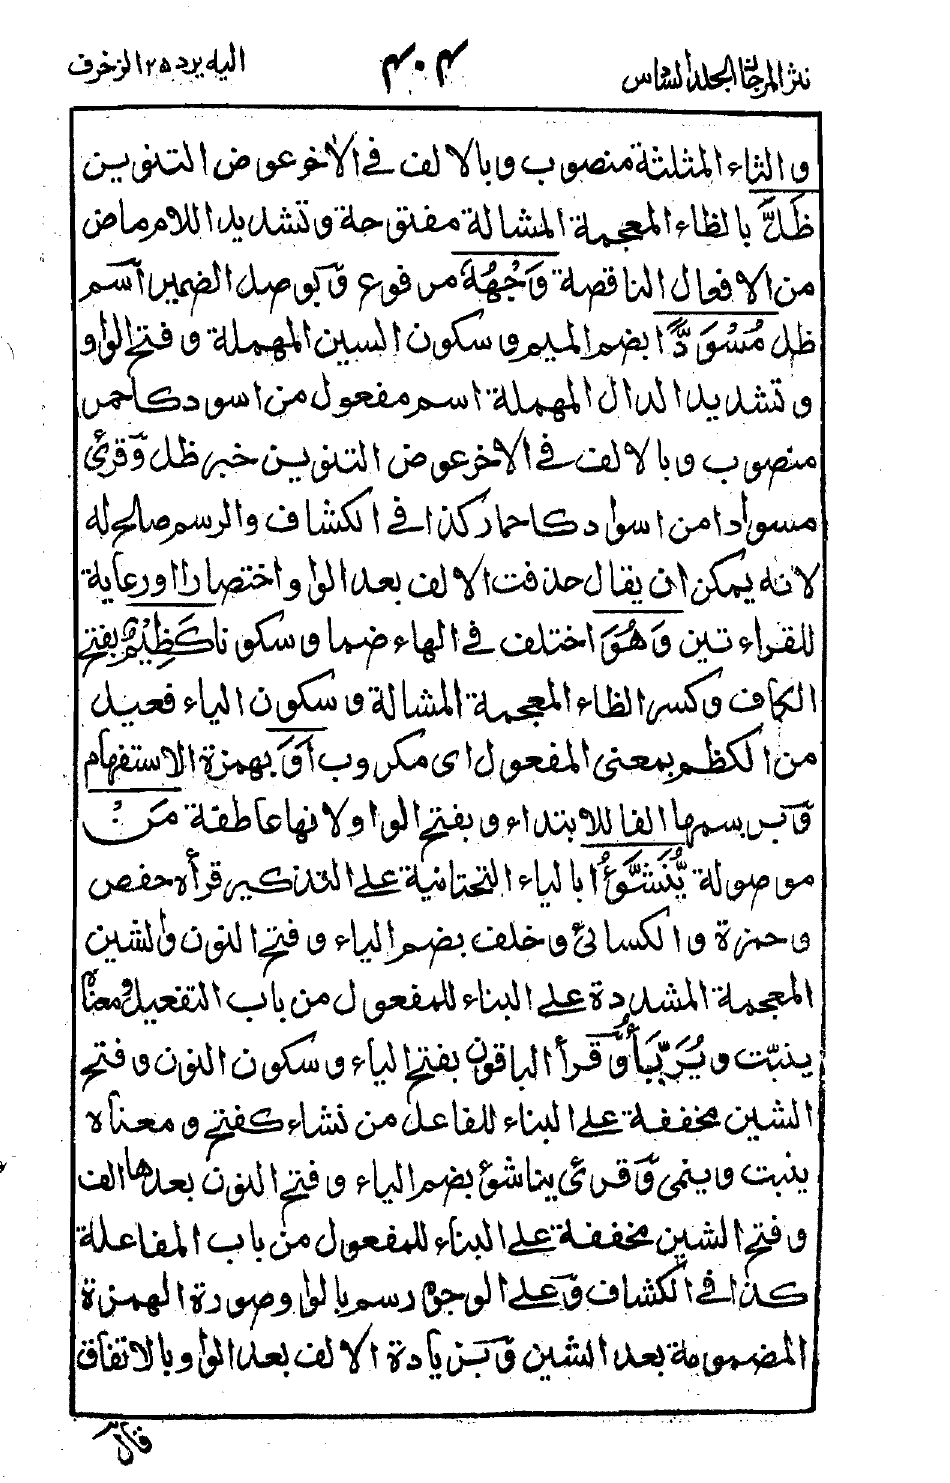 نثر المرجان الجلد السادس ۴۰۴ اليه يرد ۲۵ الزخرف
والثاء المثلثة منصوب وبالالف في الاخر عوض التنوين
ظَلَّ بالظاء المعجمة المشالة مفتوحة وتشديد اللام ماض
من الافعال الناقصة وَجْهُهٗ مرفوع وبوصل الضمير اسم
ظل مُسْوَدًّا بضم الميم وسكون السين المهملة وفتح الواو
وتشديد الدال المهملة اسم مفعول من اسود كاحمر
منصوب وبالالف في الاخر عوض التنوين خبر ظل وقرئ
مسوادا من اسواد كاحمار كذا في الكشاف والرسم صالح له
لانه يمكن ان يقال حذفت الالف بعد الواو اختصارا او رعاية
للقراءتين وَهُوَ اختلف في الهاء ضما وسكونا كَظِيْمٌ بفتح
الكاف وكسر الظاء المعجمة المشالة وسكون الياء فعيل
من الكظم بمعنى المفعول اى مكروب اَوَ بهمزة الاستفهام
وبرسمها الفا للابتداء وبفتح الواو لانها عاطفة مَنْ
موصولة يُّنَشَّؤُا بالياء التحتانية على التذكير قرأه حفص
وحمزة والكسائي وخلف بضم الياء وفتح النون والشين
المعجمة المشددة على البناء للمفعول من باب التفعيل ومعناه
ينبّت ويُرَبَّأُ وقرأ الباقون بفتح الياء وسكون النون وفتح
الشين مخففة على البناء للفاعل من نشاء كفتح ومعناه
ينبت وينمى وقرئ يناشؤ بضم الياء وفتح النون بعدها الف
وفتح الشين مخففة على البناء للمفعول من باب المفاعلة
كذا في الكشاف وعلى الوجوه رسم بالواو صورة الهمزة
المضمومة بعد الشين وبزيادة الالف بعد الواو بالاتفاق
قال